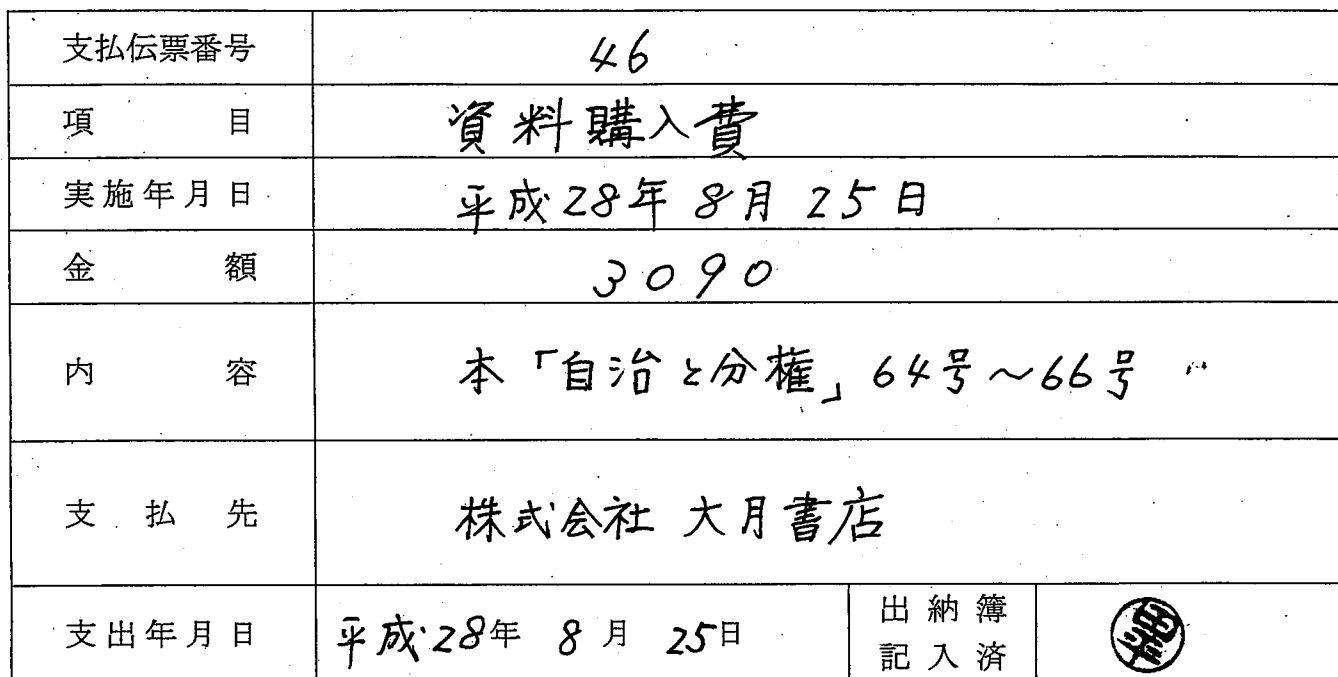 支払伝票番号 46
項目 資料購入費
実施年月日 平成28年8月25日
金額 3090
内容 本「自治と分権」64号～66号
支払先 株式会社 大月書店
支出年月日 平成28年 8月 25日 出納簿
記入済